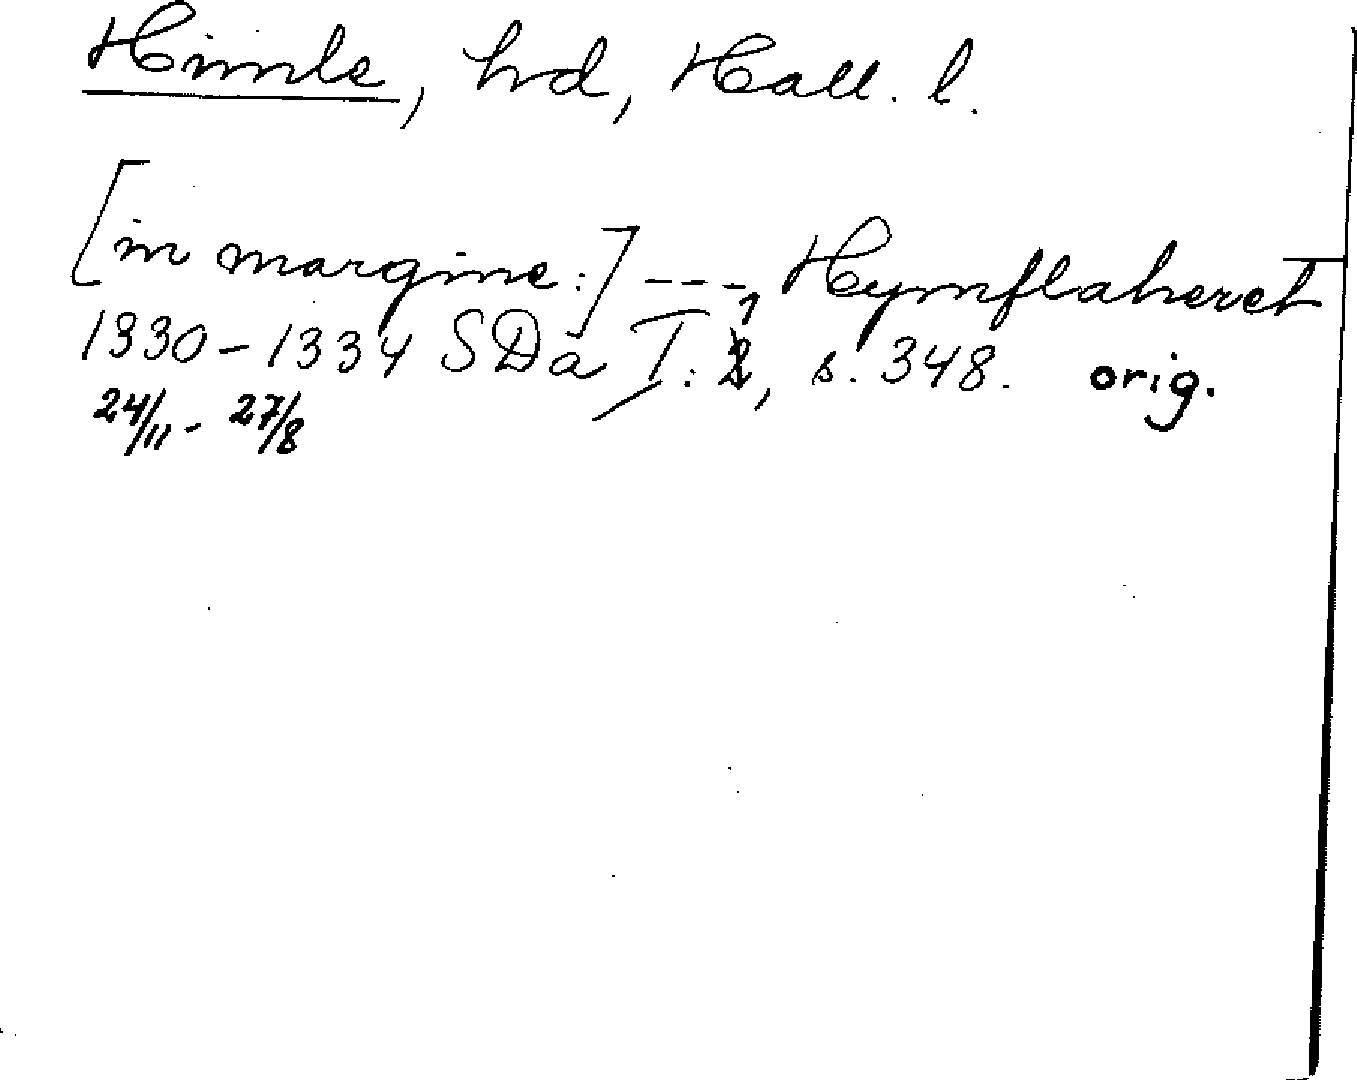 Himle, hd, Hall. l.
[in margine:] ---, Hymflaheret
1330-1334 SDa I:1, s. 348. orig.
24/11 - 27/8